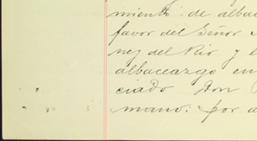 miento: de albac
favor del Señor
nez del Rio y l
albaceazgo en
ciado Don
mano. por a